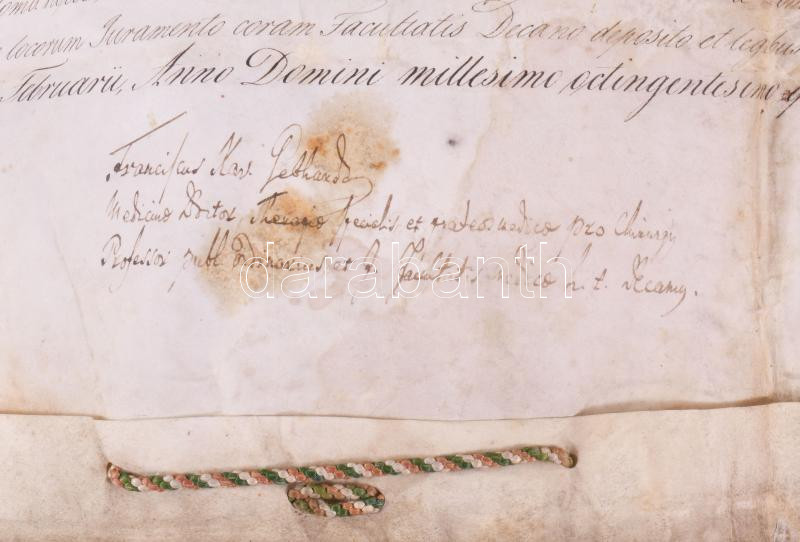 locorum Juramento coram Facultatis Decano deposito et legibus
Februarii, Anno Domini millesimo octingentesimo
Franciscus Xav. Gebhardt
Medicinae Doctor, Therapiae specialis et praxeos medicae pro Chirurgis
Professor publ. Ordinarius et I. Facultatis medicae h. t. Decanus.
darabanth